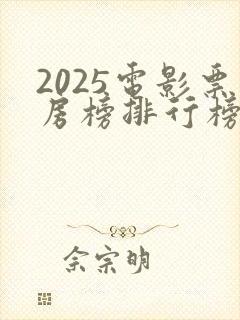 2025電影票
房榜排行榜
佘宗明